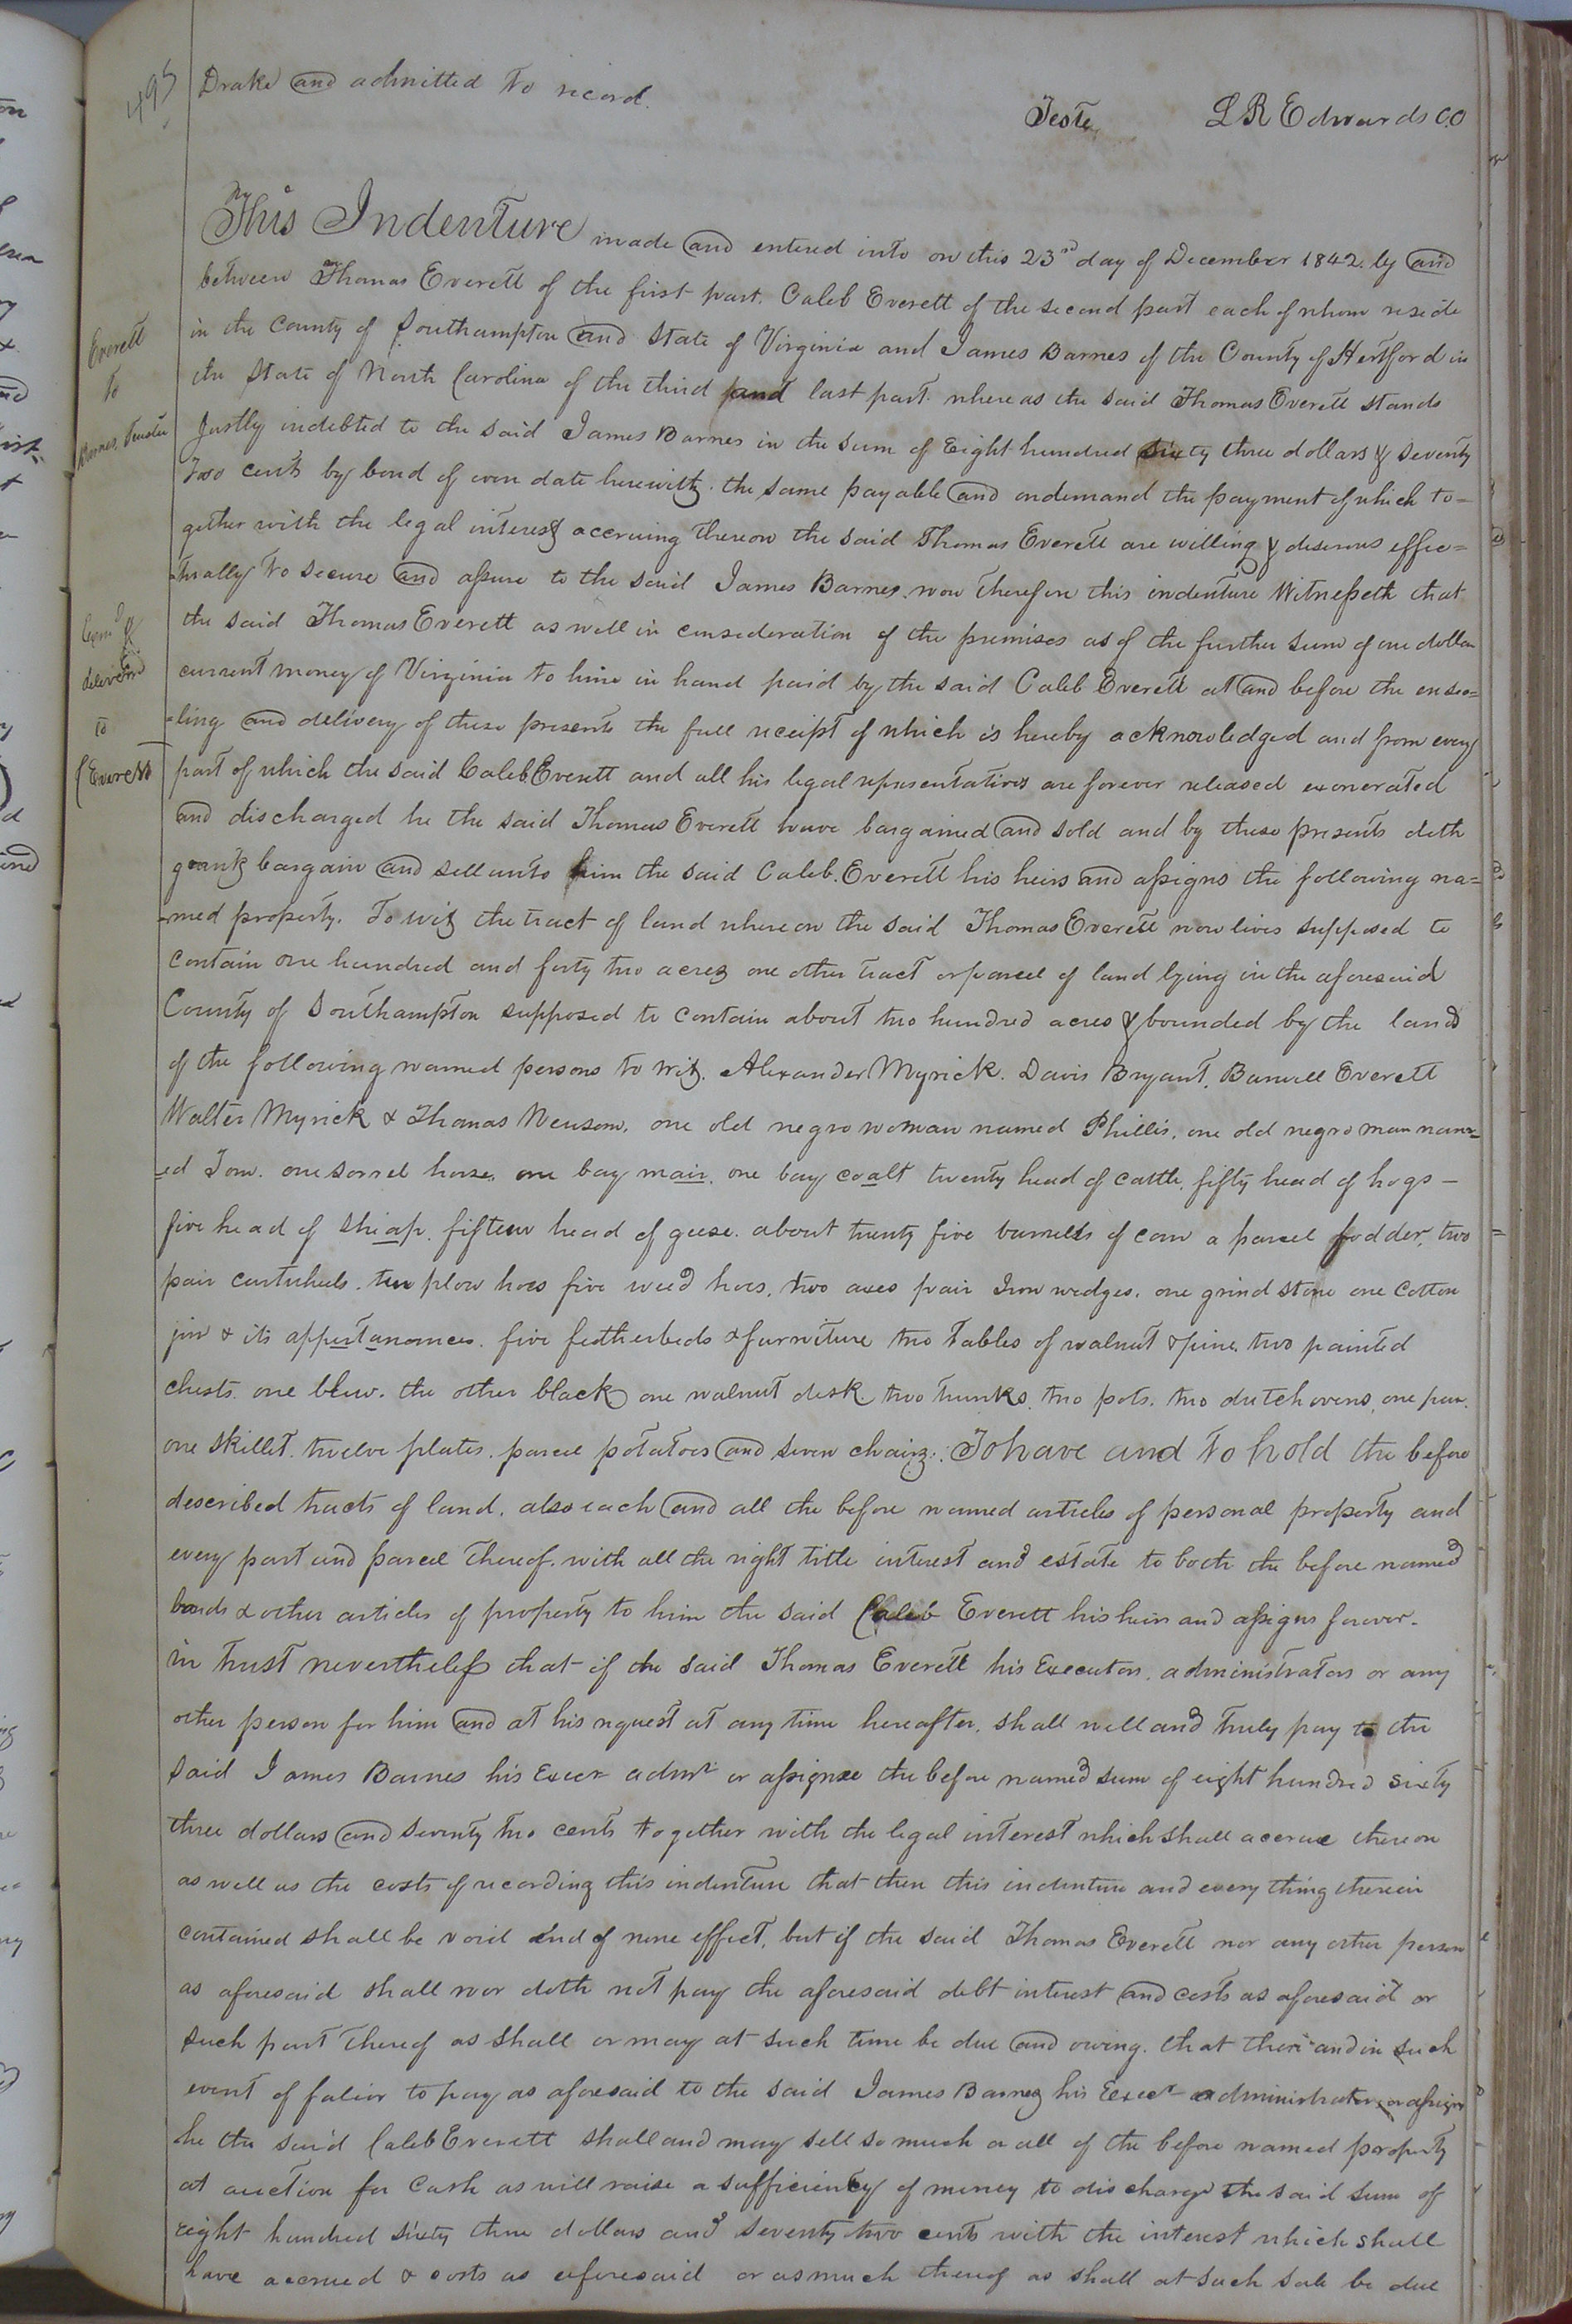 495
Drake and admitted to record.
Teste L R Edwards C.C
This Indenture made and entered into on this 23rd day of December 1842. by and
between Thomas Everett of the first part. Caleb Everett of the second part each of whom reside
in the County of Southampton and State of Virginia and James Barnes of the County of Hertford in
the State of North Carolina of the third and last part. whereas the said Thomas Everett stands
Justly indebted to the said James Barnes in the sum of Eight hundred sixty three dollars & seventy
Two cents by bond of even date herewith. the same payable and ondemand the payment of which to-
gether with the legal interest accruing thereon the said Thomas Everett are willing & desirous effec=
=tually to secure and assure to the said James Barnes. now therefore this indenture Witnesseth that
the said Thomas Everett as well in consideration of the premises as of the further sum of one dollar
current money of Virginia to him in hand paid by the said Caleb Everett at and before the ensea=
=ling and delivery of these presents the full receipt of which is hereby acknowledged and from every
part of which the said Caleb Everett and all his legal representatives are forever released exonerated
and discharged he the said Thomas Everett have bargained and sold and by these presents doth
grant bargain and sell unto him the said Caleb. Everett his heirs and assigns the following na=
=med property. To wit the tract of land whereon the said Thomas Everett now lives supposed to
contain one hundred and forty two acres one other tract or parcel of land lying in the aforesaid
County of Southampton supposed to contain about two hundred acres & bounded by the land
of the following named persons to wit. Alexander Myrick. Davis Bryant. Barwell Everett
Walter Myrick & Thomas Newsom. one old negro woman named Phillis. one old negro man nam=
=ed Tom. one sorrel horse, one bay mair. one bay coalt twenty head of cattle. fifty head of hogs -
five head of sheap. fifteen head of geese. about twenty five barrells of corn a parcel fodder, two
pair cartwheels. ten plow hoes five weed hoes, two axes pair Iron wedges. one grind stone one Cotton
jin & its appertanances. five featherbeds & furniture two tables of walnut & pine. two painted
chests. one blew. the other black one walnut desk two trunks. two pots. two dutch ovens, one pan.
one skillet. twelve plates. parcel potatoes and seven chairs. To have and to hold the before
described tracts of land. also each and all the before named articles of personal property and
every part and parcel thereof. with all the right title interest and estate to both the before named
lands & other articles of property to him the said Caleb Everett his heirs and assigns forever-
in trust nevertheless that if the said Thomas Everett his Executors. administrators or any
other person for him and at his request at any time hereafter. shall well and truly pay to the
said James Barnes his Execr admr or assignee the before named sum of eight hundred sixty
three dollars and seventy two cents together with the legal interest which shall accrue thereon
as well as the costs of recording this indenture that then this indenture and every thing therein
contained shall be void and of none effect, but if the said Thomas Everett nor any other person
as aforesaid shall nor doth not pay the aforesaid debt interest and costs as aforesaid or
such part thereof as shall or may at such time be due and owing. that then and in such
event of falior to pay as aforesaid to the said James Barnes his Execr administrators or assigns
he the said Caleb Everett shall and may sell so much or all of the before named property
at auction for Cash as will raise a sufficiency of money to discharge the said sum of
eight hundred sixty three dollars and seventy two cents with the interest which shall
have accrued & costs as aforesaid or as much thereof as shall at such sale be due
Everett
to
Barnes, Trustee
Exmd &
delivered
to
C Everett